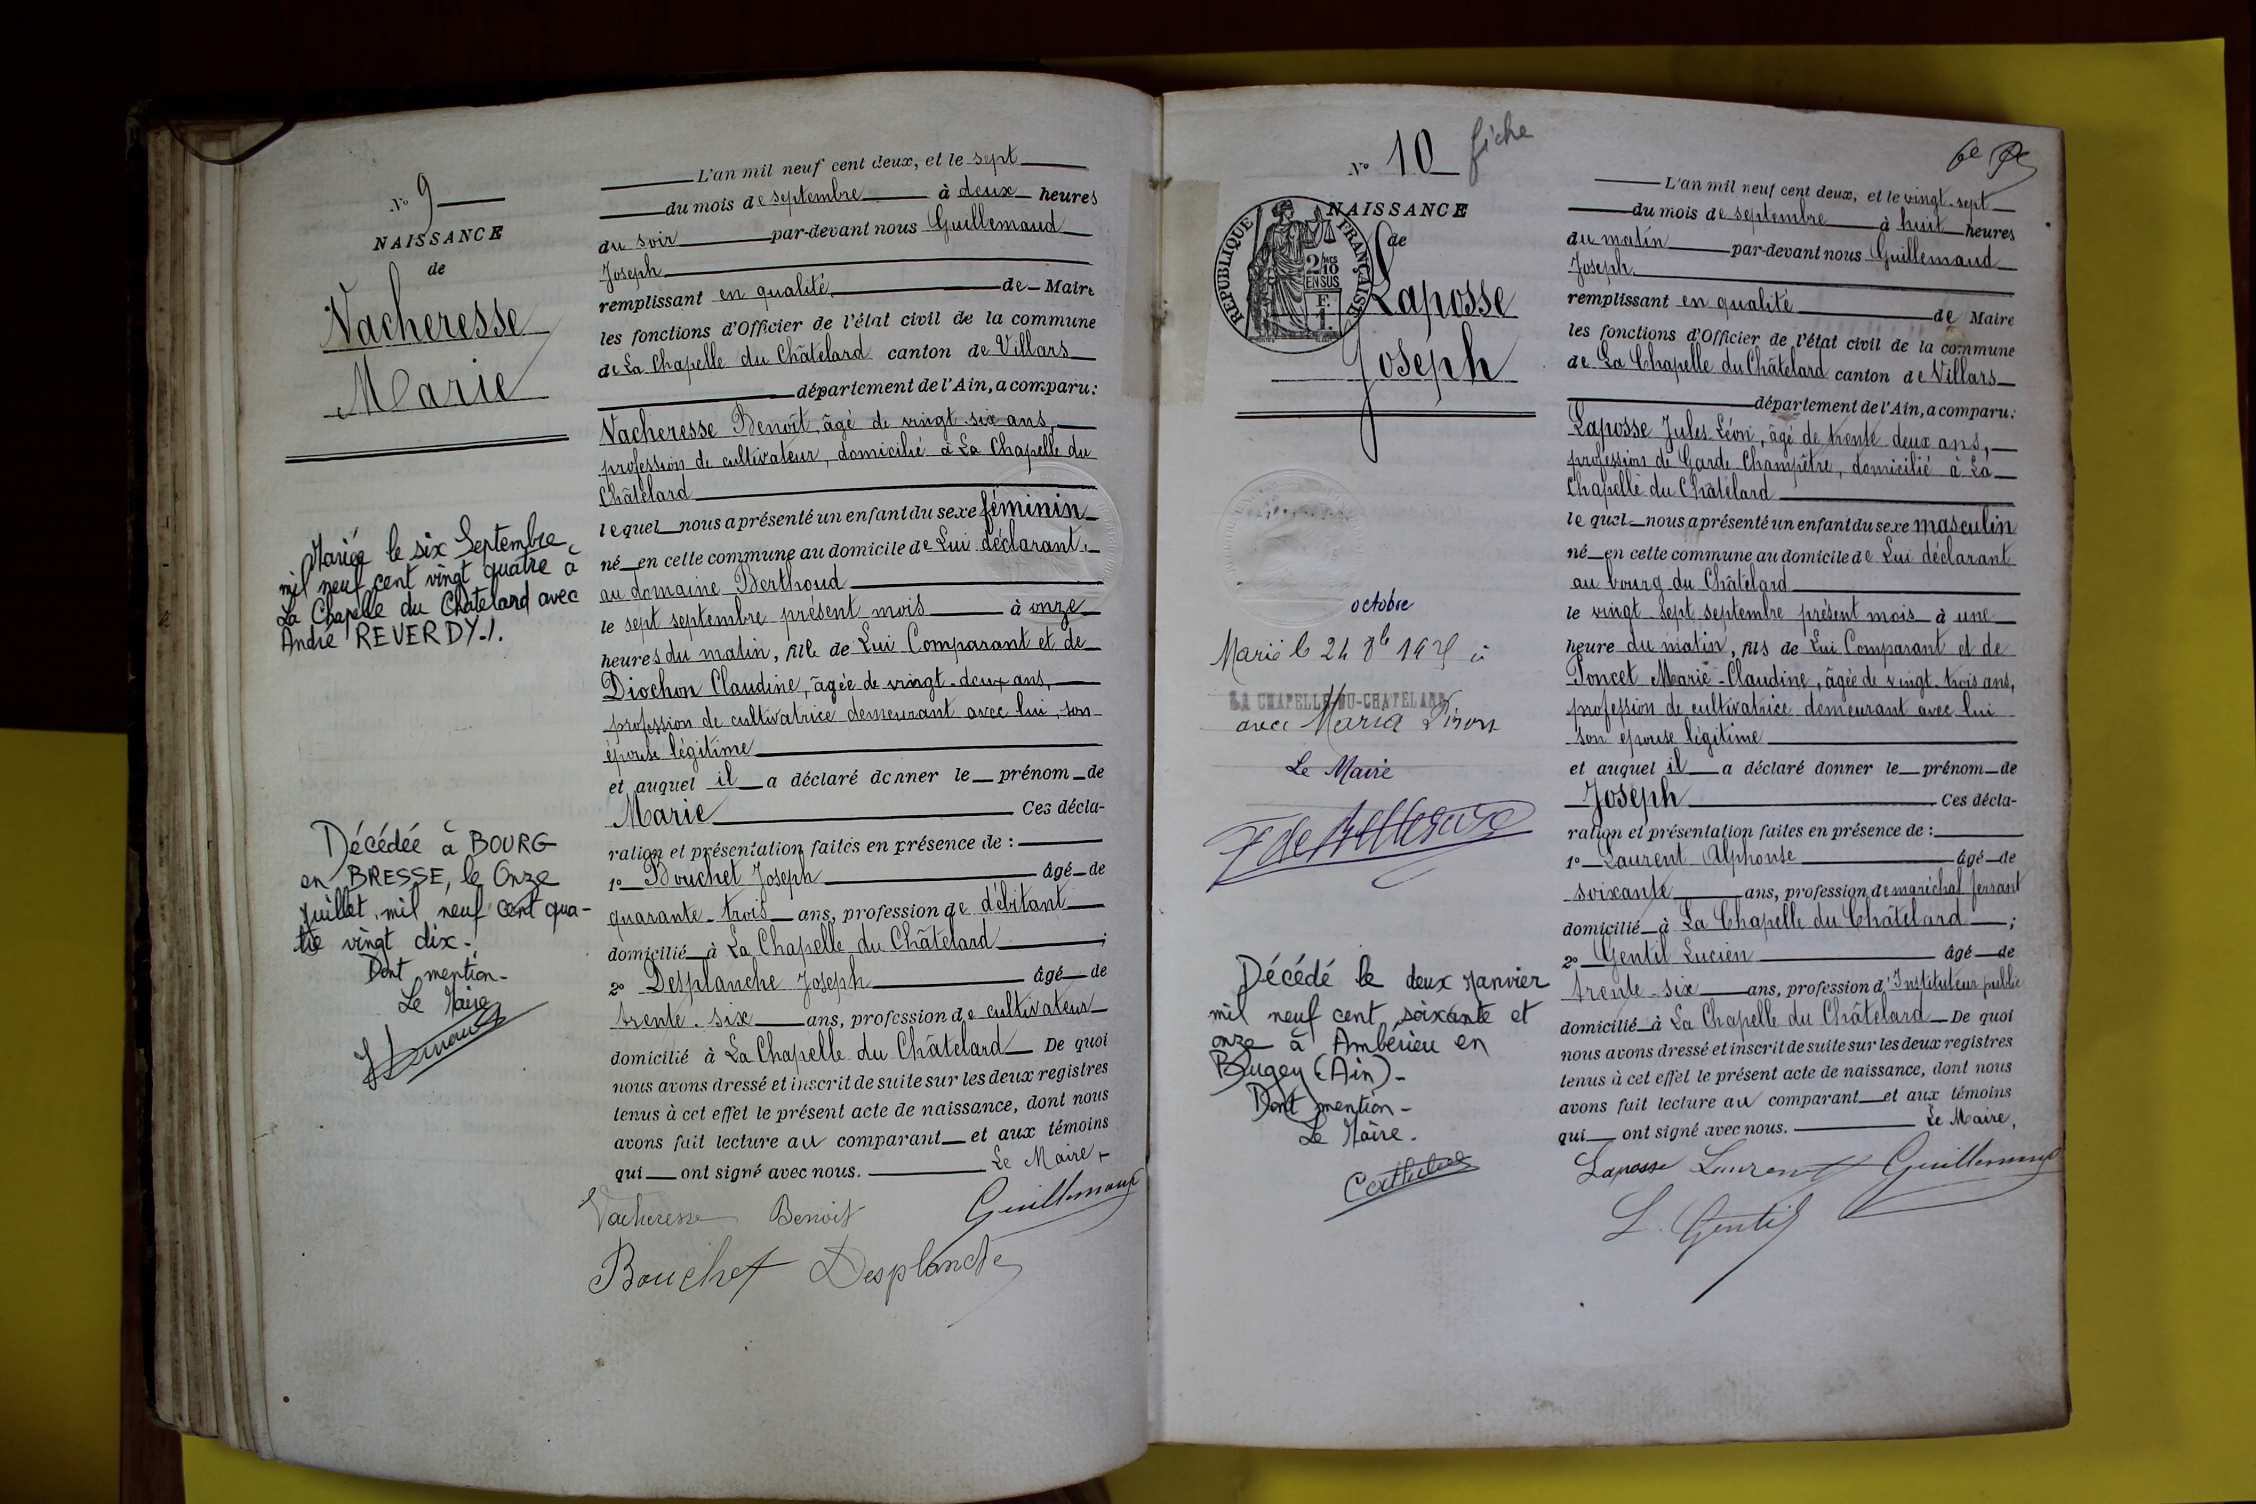 N° 9
NAISSANCE
de
Vacheresse
Marie
Mariée le six Septembre
mil neuf cent vingt quatre à
La Chapelle du Châtelard avec
André REVERDY./.
Décédée à BOURG
en BRESSE, le Onze
Juillet mil neuf cent qua-
tre vingt dix.
Dont mention-
Le Maire
L'an mil neuf cent deux, et le sept
du mois de septembre à deux heures
du soir par-devant nous Guillemaud
Joseph
remplissant en qualité de Maire
les fonctions d'Officier de l'état civil de la commune
de La Chapelle du Châtelard canton de Villars
département de l'Ain, a comparu:
Vacheresse Benoît, âgé de vingt-six ans,
profession de cultivateur, domicilié à La Chapelle du
Châtelard
lequel nous a présenté un enfant du sexe féminin
né en cette commune au domicile de Lui déclarant,
au domaine Berthoud
le sept septembre présent mois à onze
heures du matin, fille de Lui Comparant et de
Diochon Claudine, âgée de vingt-deux ans,
profession de cultivatrice demeurant avec lui, son
épouse légitime
et auquel il a déclaré donner le prénom de
Marie Ces décla-
ration et présentation faites en présence de :
1° Bouchet Joseph âgé de
quarante-trois ans, profession de débitant
domicilié à La Chapelle du Châtelard ;
2° Desplanche Joseph âgé de
trente-six ans, profession de cultivateur
domicilié à La Chapelle du Châtelard De quoi
nous avons dressé et inscrit de suite sur les deux registres
tenus à cet effet le présent acte de naissance, dont nous
avons fait lecture au comparant et aux témoins
qui ont signé avec nous. Le Maire,
Vacheresse Benoit Guillemaud
Bouchet Desplanche
N° 10 fiche
NAISSANCE
de
RÉPUBLIQUE FRANÇAISE
2/10
EN SUS
Laposse
Joseph
octobre
Marié le 24 8bre à
LA CHAPELLE-DU-CHATELARD
avec Maria
Le Maire
Décédé le deux Janvier
mil neuf cent soixante et
onze à Ambérieu en
Bugey (Ain)-
Dont mention-
Le Maire.
L'an mil neuf cent deux, et le vingt-sept
du mois de septembre à huit heures
du matin par-devant nous Guillemaud
Joseph
remplissant en qualité de Maire
les fonctions d'Officier de l'état civil de la commune
de La Chapelle du Châtelard canton de Villars
département de l'Ain, a comparu:
Laposse Jules Léon, âgé de trente deux ans,
profession de Garde Champêtre, domicilié à La
Chapelle du Châtelard
lequel nous a présenté un enfant du sexe masculin
né en cette commune au domicile de Lui déclarant
au bourg du Châtelard
le vingt-sept septembre présent mois à une
heure du matin, fils de Lui Comparant et de
Poncet Marie-Claudine, âgée de vingt-trois ans,
profession de cultivatrice demeurant avec lui
son épouse légitime
et auquel il a déclaré donner le prénom de
Joseph Ces décla-
ration et présentation faites en présence de :
1° Laurent Alphonse âgé de
soixante ans, profession de maréchal ferrant
domicilié à La Chapelle du Châtelard ;
2° Gentil Lucien âgé de
trente-six ans, profession d'Instituteur public
domicilié à La Chapelle du Châtelard De quoi
nous avons dressé et inscrit de suite sur les deux registres
tenus à cet effet le présent acte de naissance, dont nous
avons fait lecture au comparant et aux témoins
qui ont signé avec nous. Le Maire,
Laposse Laurent Guillemaud
L. Gentil